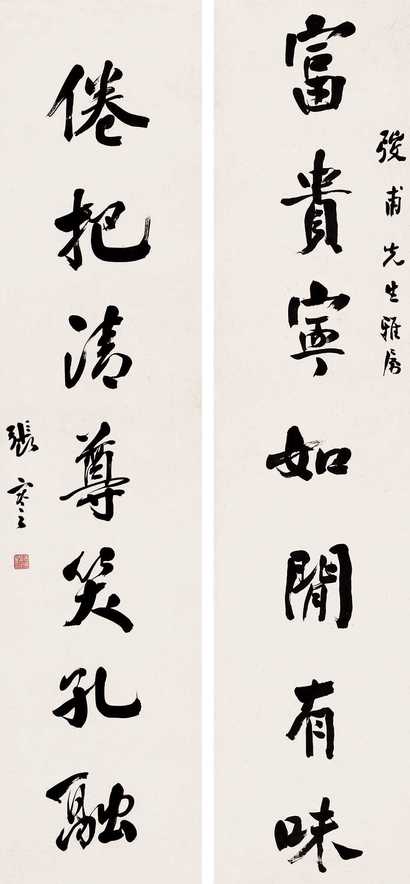 富貴寧如閒有味
甫先生雅属
倦把清尊笑孔融
張謇